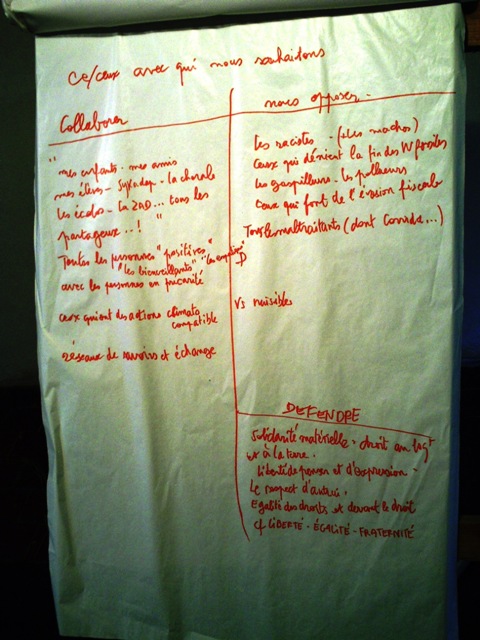 Ce/ceux avec qui nous souhaitons
Collaborer
"
mes enfants - mes amis
mes élèves - - la chorale
les écolos - la ZAD ... tous les
partageux..! "
Toutes les personnes "positives"
"les bienveillants"
avec les personnes en précarité
ceux qui ont des actions climato
compatible
réseaux de savoirs et échange
nous opposer -
Les racistes - (+ les machos)
Ceux qui dénient la fin des fossiles
Les gaspilleurs - les pollueurs
Ceux qui font de l'évasion fiscale
Tous les maltraitants (dont Corrida...)
vs nuisibles
DEFENDRE
Solidarité matérielle - droit au logt
et à la terre.
Liberté de penser et d'expression -
Le respect d'autrui.
Egalité des droits et devant le droit
cf LIBERTÉ - ÉGALITÉ - FRATERNITÉ